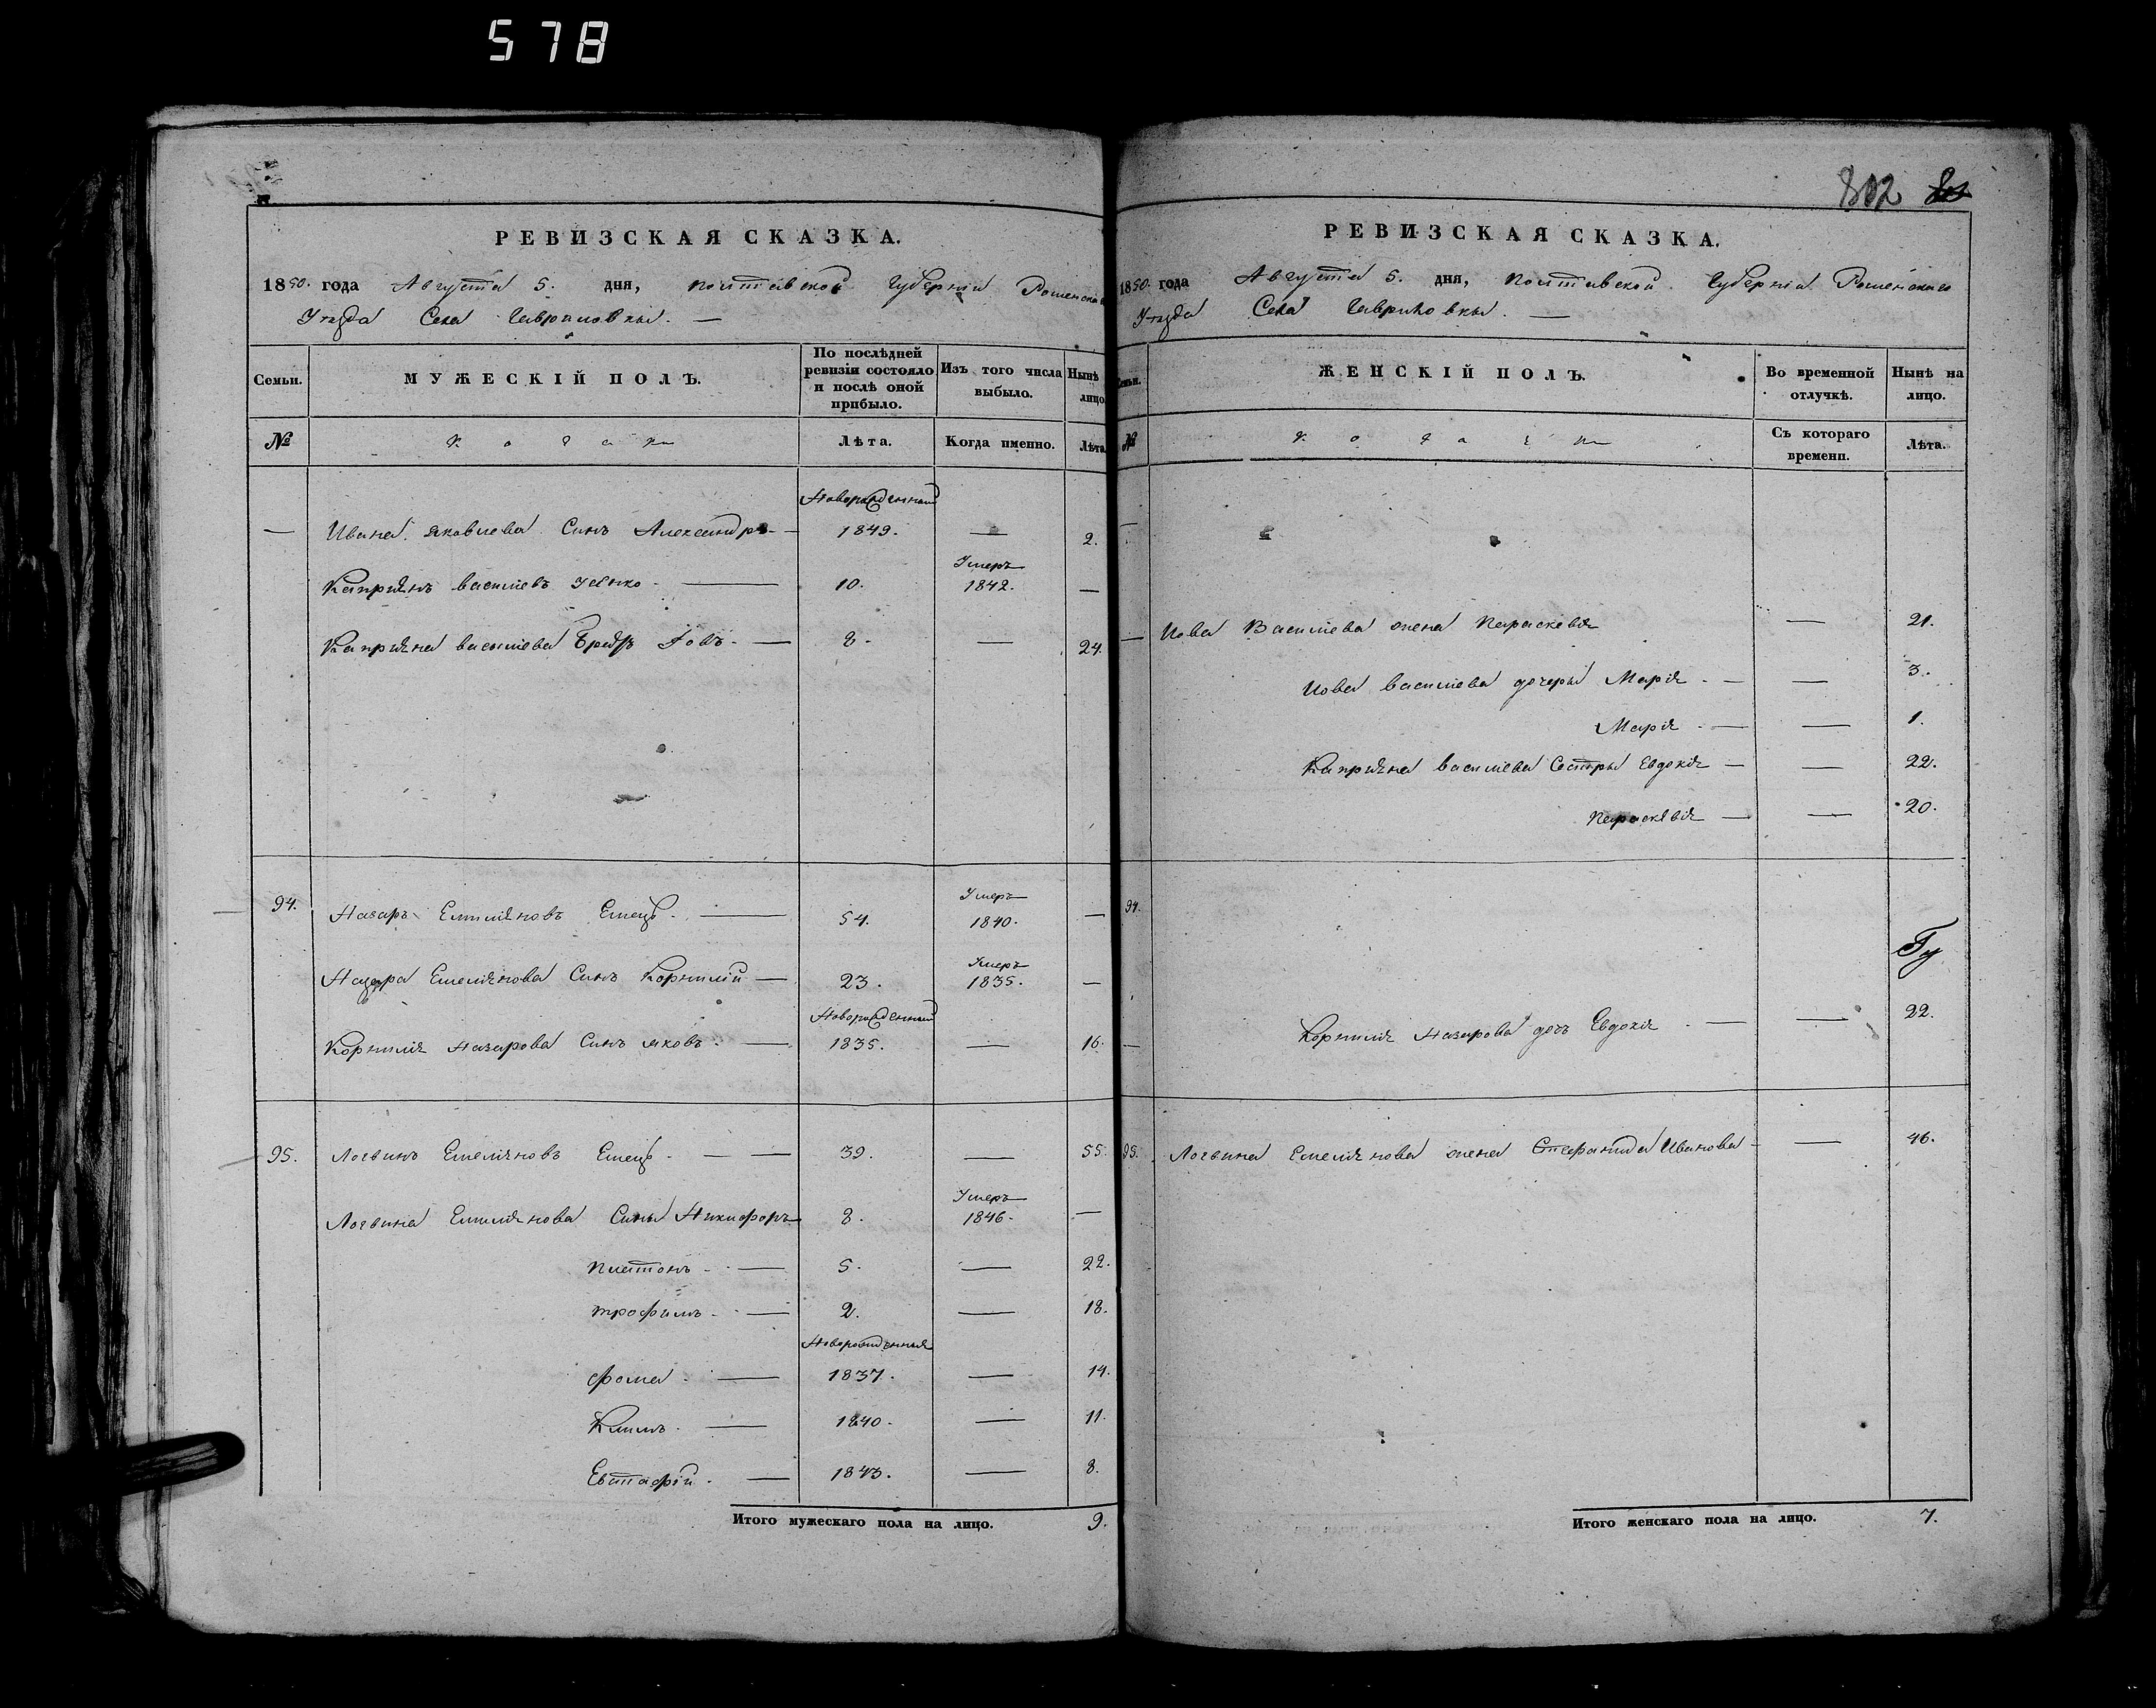 578
РЕВИЗСКАЯ СКАЗКА.
1850. года Августа 5. дня, Полтавской Губерніи Роменскаго
Уѣзда Села Гавриловки. —
Семьи. МУЖЕСКІЙ ПОЛЪ. По послѣдней ревизіи состояло и послѣ оной прибыло. Изъ того числа выбыло. Нынѣ лицо
№ Козаки Лѣта. Когда именно. Лѣта
Новорожденный
— Ивана Яковлева Синъ Александръ — 1849. — 2.
Умеръ
Капріянъ Василіевъ — 10. 1842. —
Капріяна Василіева Братъ Іовъ — 8. — 24.
Умеръ
94. Назаръ Емиліяновъ Емецъ — 54. 1840. —
Умеръ
Назара Емеліянова Синъ Корнилій — 23. 1835. —
Новорожденный
Корнилія Назарова Синъ Яковъ — 1835. — 16.
95. Логвинъ Емеліяновъ Емецъ — — 39. — 55.
Умеръ
Логвина Емиліянова Сины Никифоръ 8. 1846. —
Платонъ — 5. — 22.
Трофимъ — 2. — 18.
Новорожденныя
Фома — 1837. — 14.
Климъ — 1840. — 11.
Евстафій — 1843. — 8.
Итого мужескаго пола на лицо. 9.
802
РЕВИЗСКАЯ СКАЗКА.
1850. года Августа 5. дня, Полтавской Губерніи Роменскаго
Уѣзда Села Гавриловки. —
Семьи. ЖЕНСКІЙ ПОЛЪ. Во временной отлучкѣ. Нынѣ на лицо.
№ Козачки Съ котораго времени. Лѣта.
—
— Иова Василіева жена Параскевія — 21.
Иова Василіева дочеры Марія — — 3.
Марія — — 1.
Капріяна Василіева Сестры Евдокія — — 22.
Параскевія — — 20.
94.
— Корнилія Назарова дочъ Евдокія — — 22.
95. Логвина Емеліянова жена Стефанида Иванова — — 46.
Итого женскаго пола на лицо. 7.